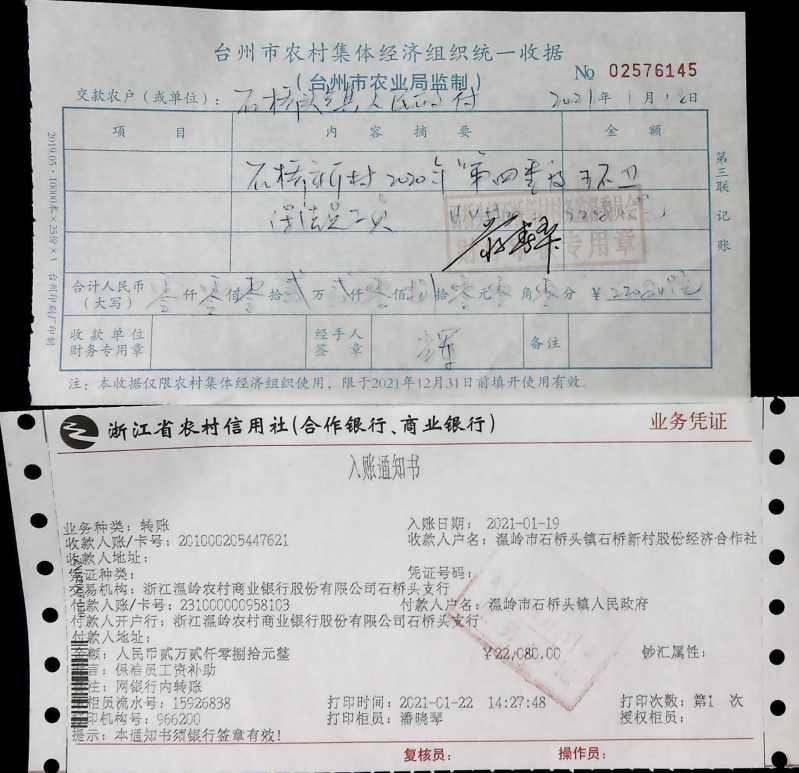 台州市农村集体经济组织统一收据
(台州市农业局监制)
No 02576145
交款农户(或单位): 石桥头镇人民政府 2021年1月18日
项 目 内 容 摘 要 金 额
石桥新村2020年第四季度环卫
保洁员工资
财 专用章
合计人民币(大写) 零仟零佰零拾贰万贰仟零佰捌拾零元零角零分 ¥22080.00元
收款单位财务专用章 经手人签章 备注
注:本收据仅限农村集体经济组织使用,限于2021年12月31日前填开使用有效。
第三联 记账
2019.05·10000本×25份×3 台州印刷厂印制
浙江省农村信用社(合作银行、商业银行) 业务凭证
入账通知书
业务种类: 转账 入账日期: 2021-01-19
收款人账/卡号: 201000205447621 收款人户名: 温岭市石桥头镇石桥新村股份经济合作社
收款人地址:
凭证种类: 凭证号码:
交易机构: 浙江温岭农村商业银行股份有限公司石桥头支行
付款人账/卡号: 231000000958103 付款人户名: 温岭市石桥头镇人民政府
付款人开户行: 浙江温岭农村商业银行股份有限公司石桥头支行
付款人地址:
金额: 人民币贰万贰仟零捌拾元整 ¥22,080.00 钞汇属性:
言: 保洁员工资补助
注: 网银行内转账
柜员流水号: 15926838 打印时间: 2021-01-22 14:27:48 打印次数: 第1 次
打印机构号: 966200 打印柜员: 潘晓琴 授权柜员:
提示: 本通知书须银行签章有效!
复核员: 操作员: